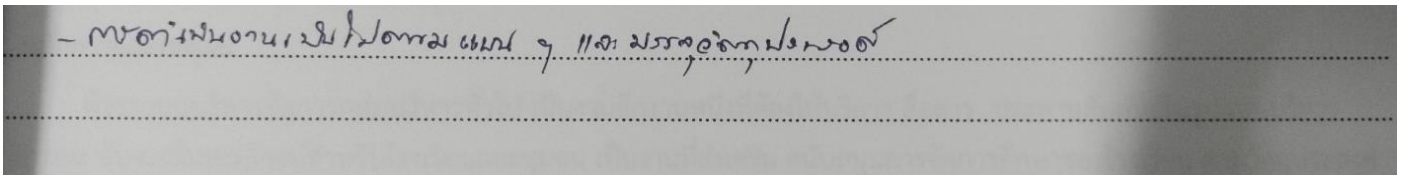 - การดำเนินงานเป็นไปตามแผน ๆ และบรรลุวัตถุประสงค์